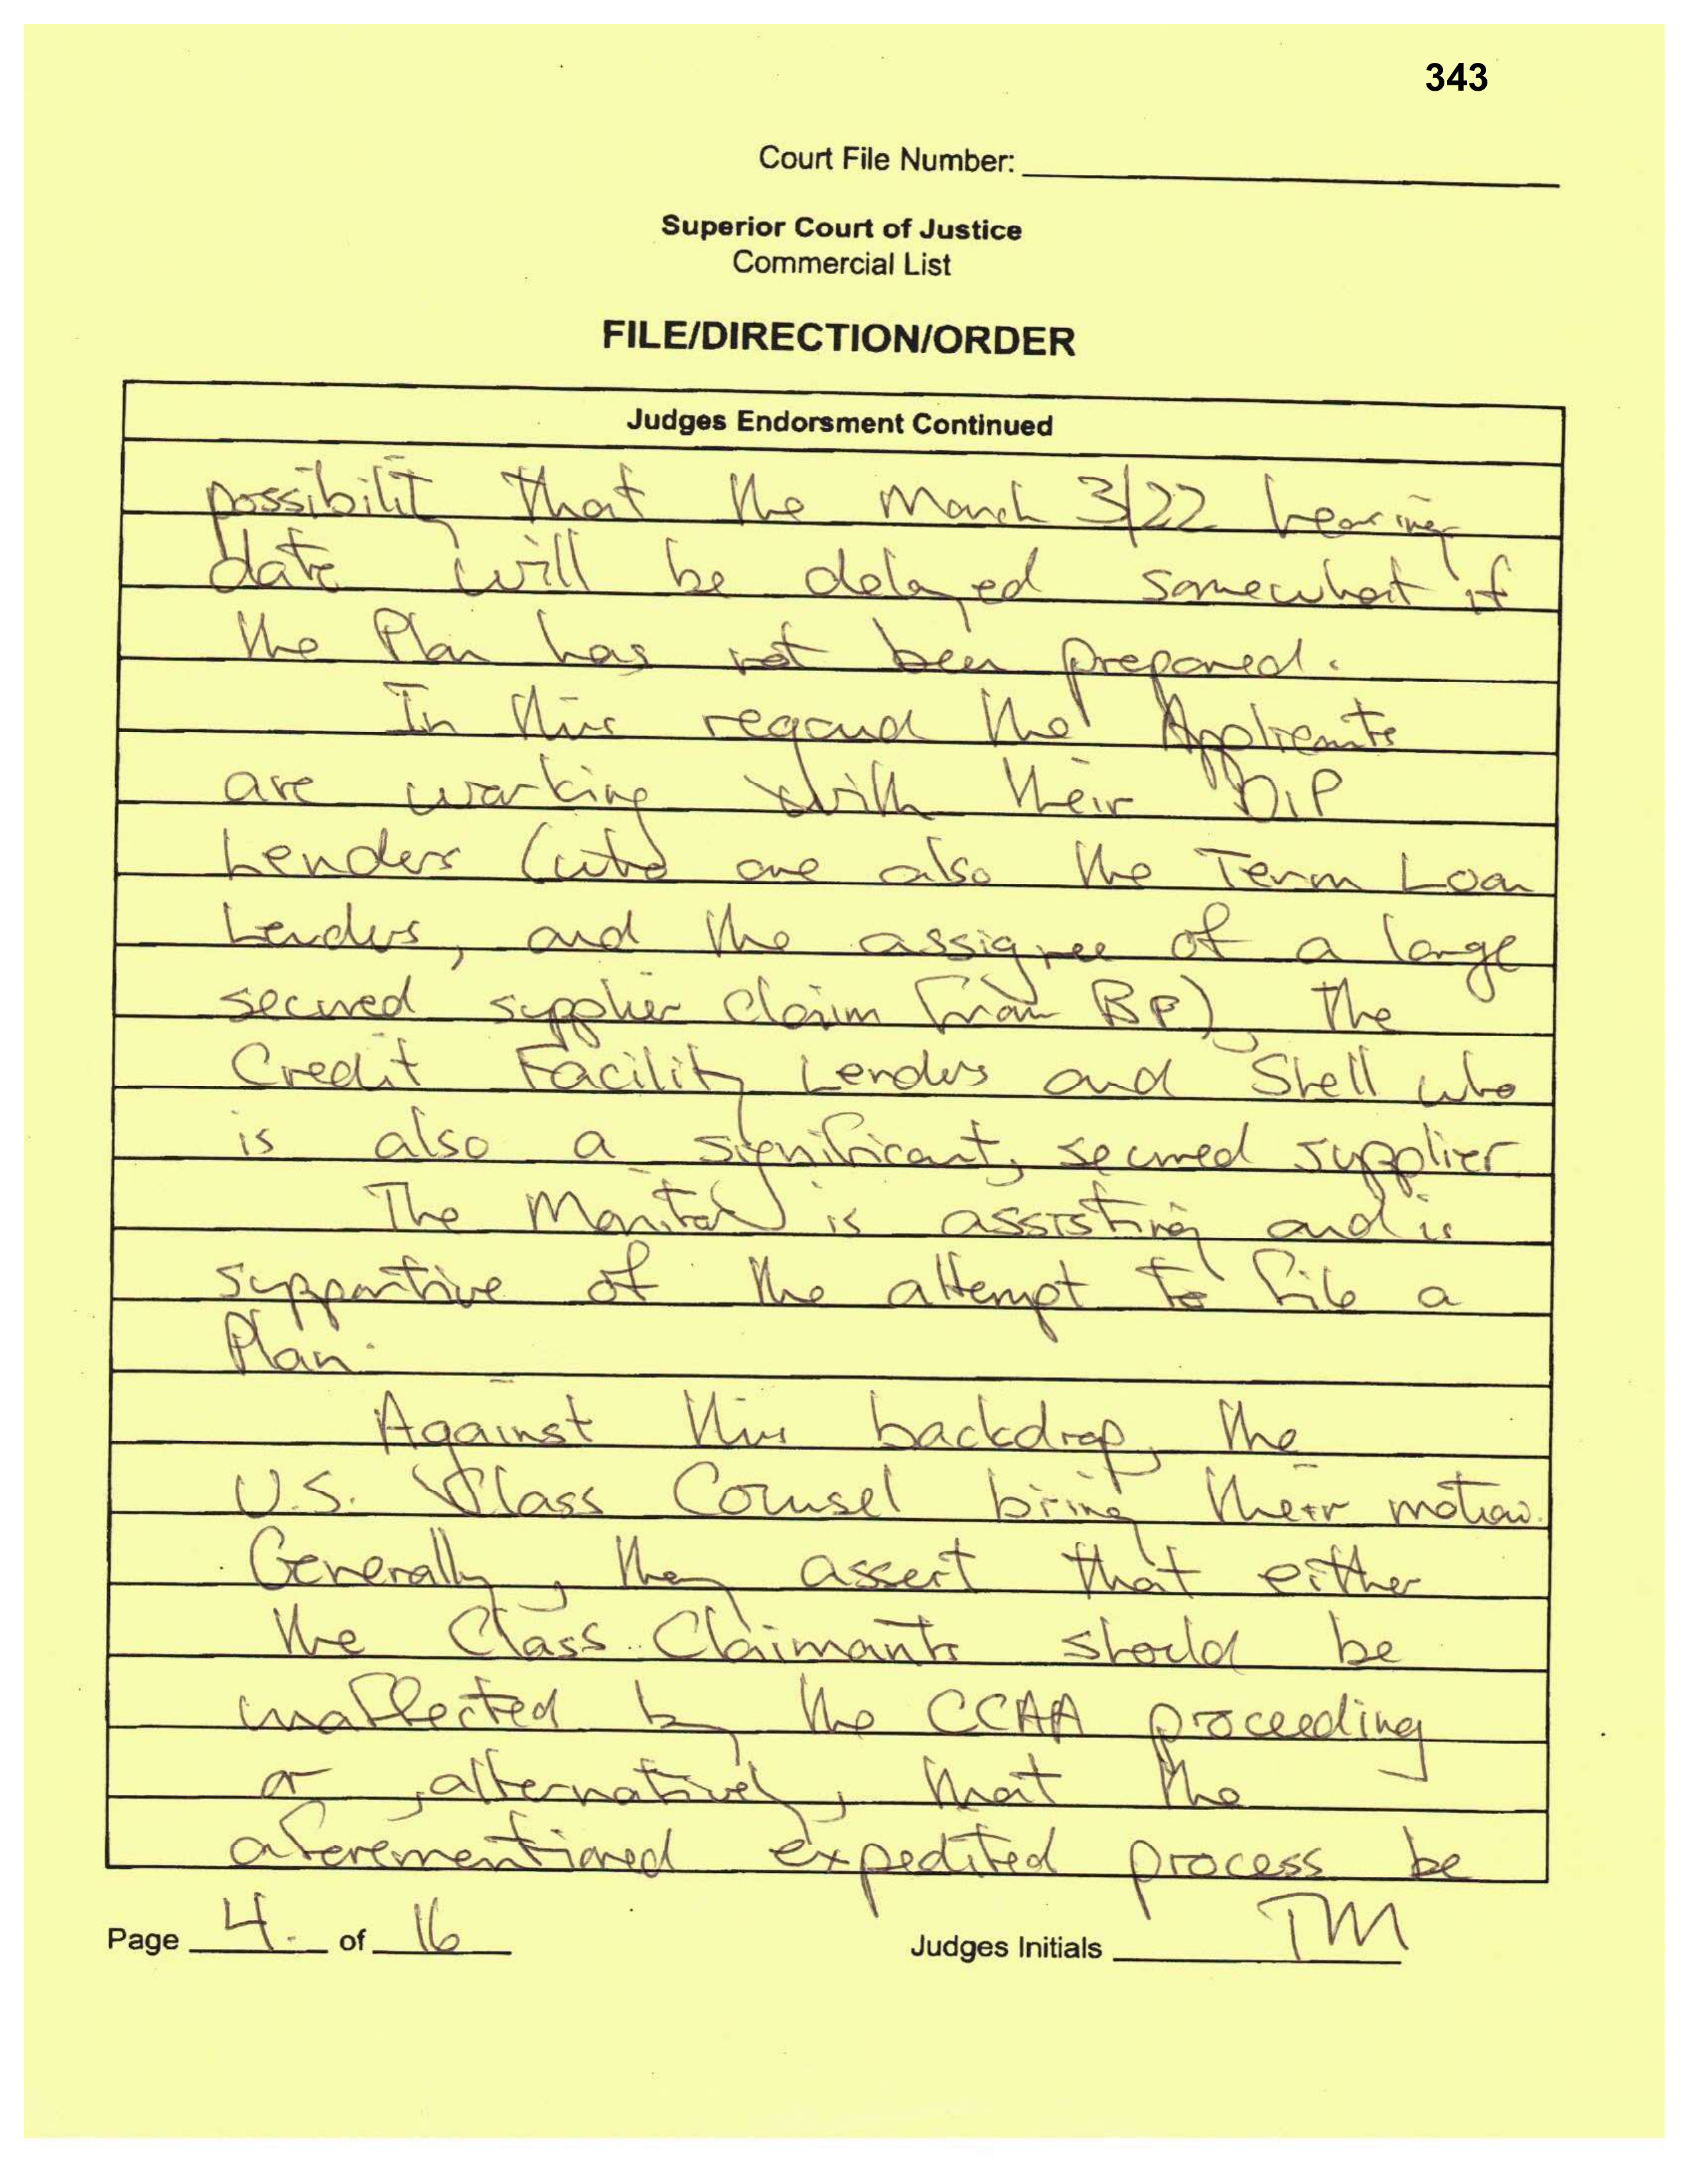 343
Court File Number:
Superior Court of Justice
Commercial List
FILE/DIRECTION/ORDER
Judges Endorsment Continued
possibility that the March 3/22 hearing
date will be delayed somewhat if
the Plan has not been prepared.
In this regard the Applicants
are working with their DIP
Lenders (who are also the Term Loan
Lenders, and the assignee of a large
secured supplier claim from BP), the
Credit Facility Lenders and Shell who
is also a significant, secured supplier.
The Monitor is assisting and is
supportive of the attempt to file a
Plan.
Against this backdrop, the
U.S. Class Counsel bring their motion.
Generally, they assert that either
the Class Claimants should be
unaffected by the CCAA proceeding
or, alternatively, that the
aforementioned expedited process be
Page 4. of 16
Judges Initials TM